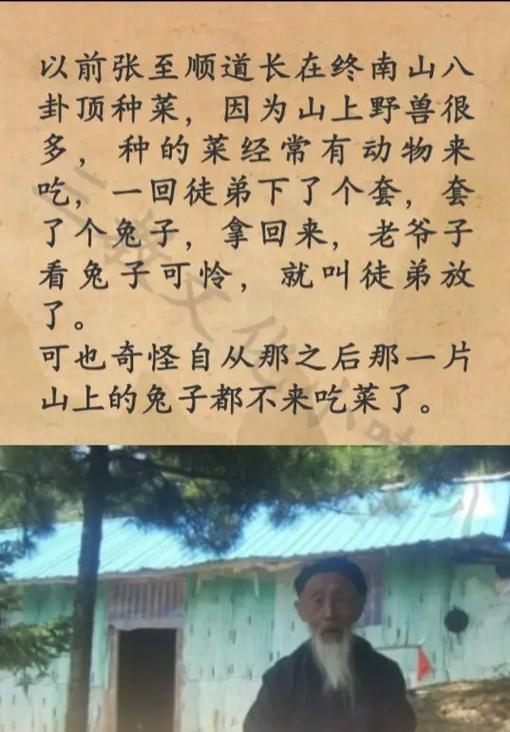 以前张至顺道长在终南山八
卦顶种菜，因为山上野兽很
多，种的菜经常有动物来
吃，一回徒弟下了个套，套
了个兔子，拿回来，老爷子
看兔子可怜，就叫徒弟放
了。
可也奇怪自从那之后那一片
山上的兔子都不来吃菜了。
三教文化